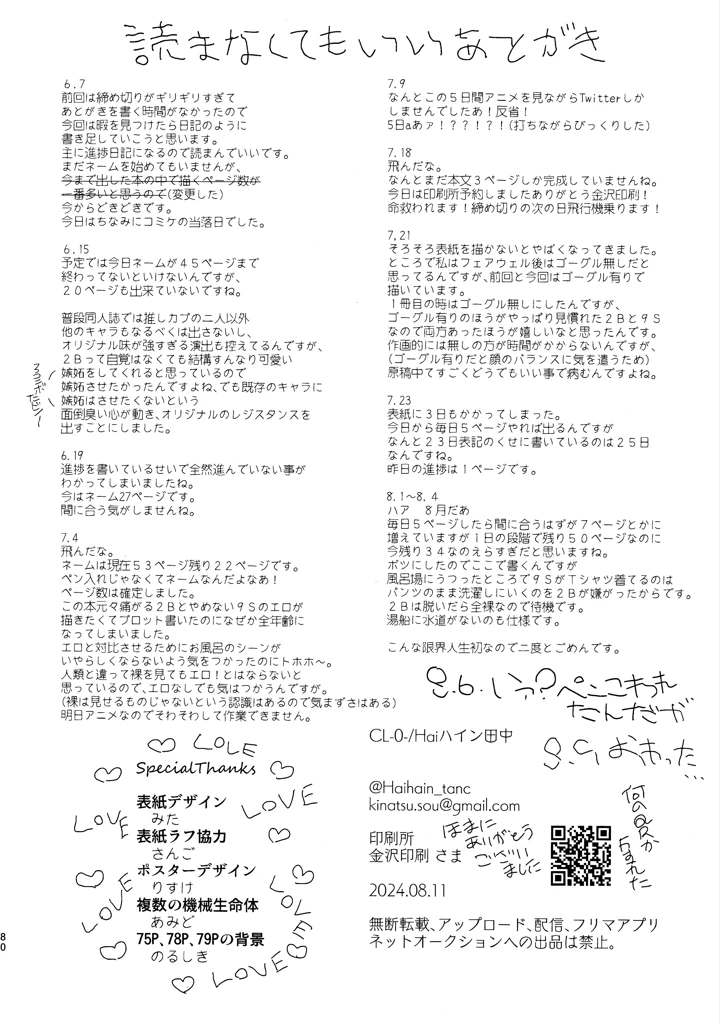 読まなくてもいいあとがき
6.7
前回は締め切りがギリギリすぎて
あとがきを書く時間がなかったので
今回は暇を見つけたら日記のように
書き足していこうと思います。
主に進捗日記になるので読まんでいいです。
まだネームを始めてもいませんが、
今まで出した本の中で描くページ数が
一番多いと思うので(変更した)
今からどきどきです。
今日はちなみにコミケの当落日でした。
6.15
予定では今日ネームが45ページまで
終わってないといけないんですが、
20ページも出来ていないですね。
普段同人誌では推しカプの二人以外
他のキャラもなるべくは出さないし、
オリジナル味が強すぎる演出も控えてるんですが、
2Bって自覚はなくても結構すんなり可愛い
嫉妬をしてくれると思っているので
嫉妬させたかったんですよね、でも既存のキャラに
嫉妬はさせたくないという
面倒臭い心が動き、オリジナルのレジスタンスを
出すことにしました。
6.19
進捗を書いているせいで全然進んでいない事が
わかってしまいましたね。
今はネーム27ページです。
間に合う気がしませんね。
7.4
飛んだな。
ネームは現在53ページ残り22ページです。
ペン入れじゃなくてネームなんだよなあ!
ページ数は確定しました。
この本元々痛がる2Bとやめない9Sのエロが
描きたくてプロット書いたのになぜか全年齢に
なってしまいました。
エロと対比させるためにお風呂のシーンが
いやらしくならないよう気をつかったのにトホホ〜。
人類と違って裸を見てもエロ!とはならないと
思っているので、エロなしでも気はつかうんですが。
(裸は見せるものじゃないという認識はあるので気まずさはある)
明日アニメなのでそわそわして作業できません。
7.9
なんとこの5日間アニメを見ながらTwitterしか
しませんでしたあ!反省!
5日aあァ!???!?!(打ちながらびっくりした)
7.18
飛んだな。
なんとまだ本文3ページしか完成していませんね。
今日は印刷所予約しましたありがとう金沢印刷!
命救われます!締め切りの次の日飛行機乗ります!
7,21
そろそろ表紙を描かないとやばくなってきました。
ところで私はフェアウェル後はゴーグル無しだと
思ってるんですが、前回と今回はゴーグル有りで
描いています。
1冊目の時はゴーグル無しにしたんですが、
ゴーグル有りのほうがやっぱり見慣れた2Bと9S
なので両方あったほうが嬉しいなと思ったんです。
作画的には無しの方が時間がかからないんですが、
(ゴーグル有りだと顔のバランスに気を遣うため)
原稿中てすごくどうでもいい事で病むんですよね。
7.23
表紙に3日もかかってしまった。
今日から毎日5ページやれば出るんですが
なんと23日表記のくせに書いているのは25日
なんですね。
昨日の進捗は1ページです。
8.1〜8.4
ハア 8月だあ
毎日5ページしたら間に合うはずが7ページとかに
増えていますが1日の段階で残り50ページなのに
今残り34なのえらすぎだと思いますね。
ボツにしたのでここで書くんですが
風呂場にうつったところで9SがTシャツ着てるのは
パンツのまま洗濯しにいくのを2Bが嫌がったからです。
2Bは脱いだら全裸なので待機です。
湯船に水道がないのも仕様です。
こんな限界人生初なので二度とごめんです。
8.6.いつ?ぺンこわれ
たんだが
8.9おわった...
何のQRか
忘れた
LOVE
SpecialThanks
LOVE
LOVE
表紙デザイン
みた
表紙ラフ協力
さんご
ポスターデザイン
りすけ
複数の機械生命体
あみど
75P、78P、79Pの背景
のるしき
LOVE
LOVE
LOVE
CL-0-/Haiハイン田中
@Haihain_tanc
kinatsu.sou@gmail.com
印刷所
金沢印刷 さま
ほまに
ありがとう
ございい
ました
2024.08.11
無断転載、アップロード、配信、フリマアプリ
ネットオークションへの出品は禁止。
80